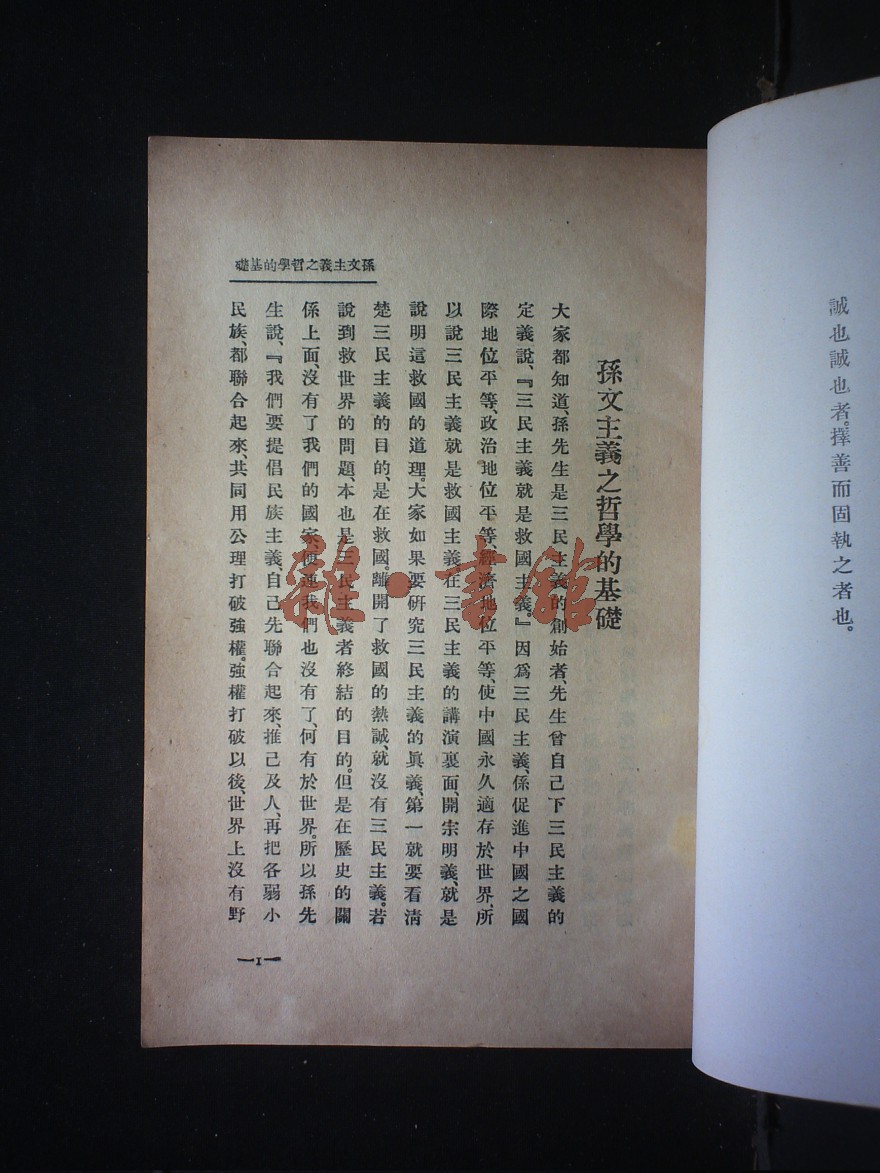 誠也誠也者。擇善而固執之者也。
孫文主義之哲學的基礎
孫文主義之哲學的基礎
大家都知道、孫先生是三民主義的創始者、先生曾自己下三民主義的
定義說、『三民主義就是救國主義。』因爲三民主義、係促進中國之國
際地位平等、政治地位平等、經濟地位平等、使中國永久適存於世界、所
以說三民主義就是救國主義。在三民主義的講演裏面、開宗明義、就是
說明這救國的道理。大家如果要研究三民主義的眞義、第一就要看清
楚三民主義的目的、是在救國。離開了救國的熱誠、就沒有三民主義。若
說到救世界的問題、本也是三民主義者終結的目的。但是在歷史的關
係上面、沒有了我們的國家、便連我們也沒有了、何有於世界。所以孫先
生說、『我們要提倡民族主義、自己先聯合起來、推己及人、再把各弱小
民族、都聯合起來、共同用公理打破強權。強權打破以後、世界上沒有野
—1—
雜·書館